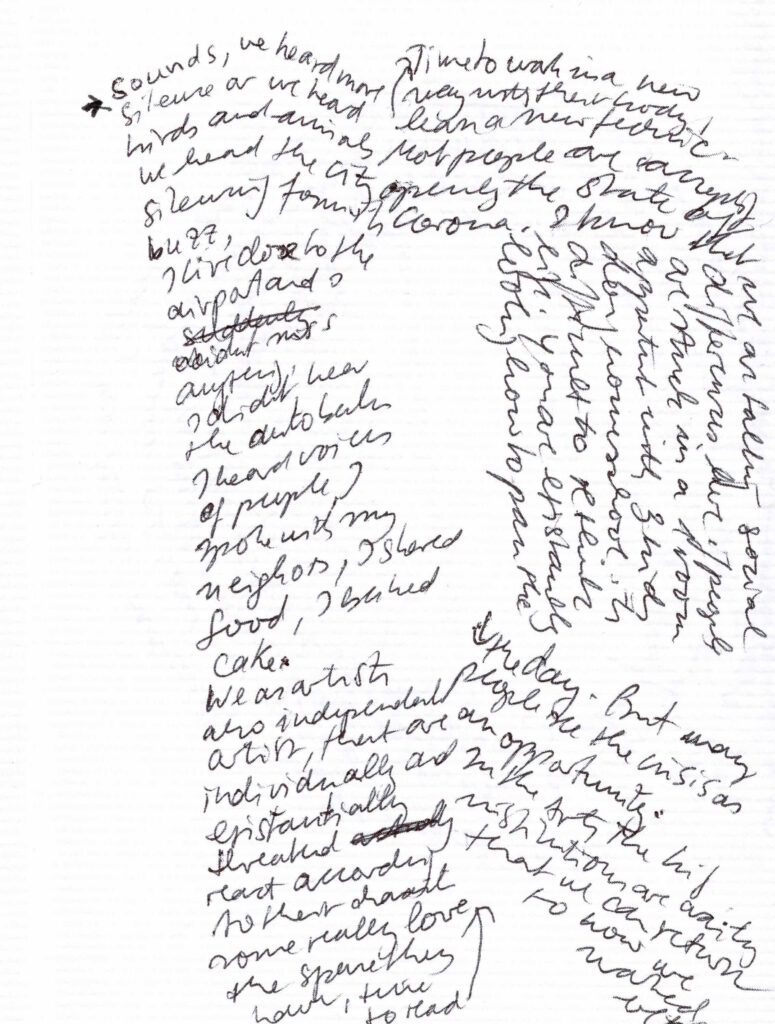 sounds, we heard more
silence or we head
birds and animals
we head the city
silencing
buzz,
I live close to the
airport and I
didnt miss
anything,
I didnt hear
the autobahn
I heard voices
of people, I
spoke with my
neighbors, I shared
food, I baked
cake.
We as artists
also independent
artist, that are
individually and
existantially
threated
react according
to their
some really love
the spare they
have, time
to read
Time to walk in a new
way with their body,
learn a new technic
Most people are accepting
openly the state of
Corona. I know that we are talking social
differences here if people
are stuck in a 1 room
appartment with 3 kids
doing homeschool its
difficult to rethink
life if you are existantially
looking how to pass the
the day. But many
people see the crisis as
an opportunity.
In the arts the big
institutions are waiting
that we can return
to how we